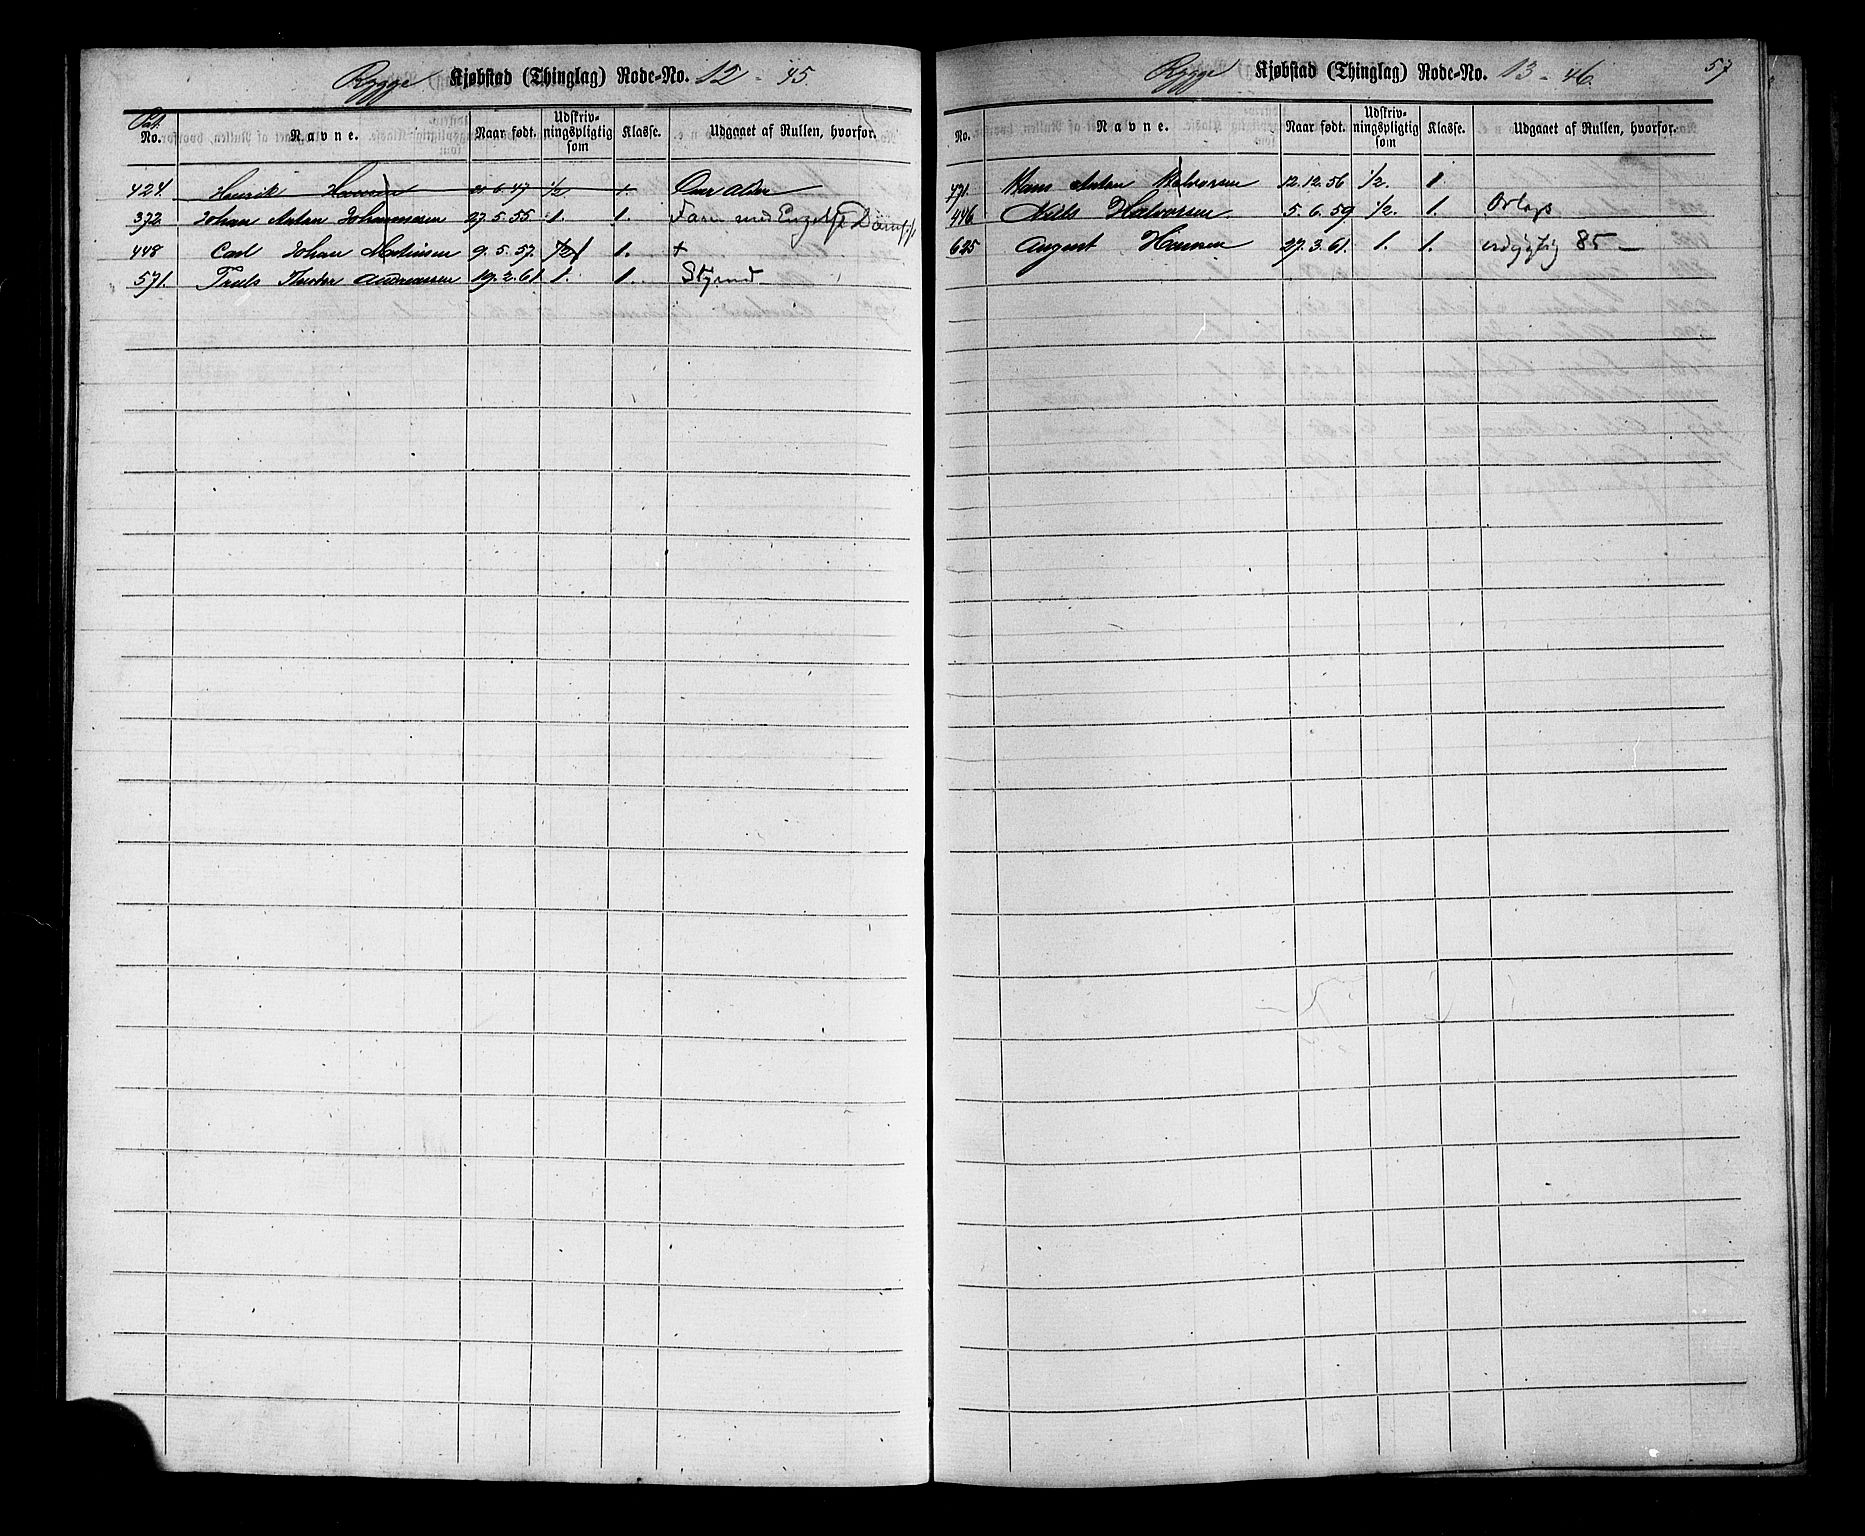 Rygge Kjøbstad (Thinglag) Rode-No. 12 - 45.
Pat. No. Navne. Naar født. Udskrivningspligtig som Klasse. Udgaaet af Rullen, hvorfor.
424. Henrik Hansen 21.6.47 1/2 1. Over alder
372. Johan Anton Johannesen 27.5.55 1. 1. Farer med Engelsk Damps.
448 Carl Johan Martinsen 9.5.57. 1/2 1. +
571. Truls Theodor Andreassen 19.2.61 1. 1. Styrmd.
Rygge Kjøbstad (Thinglag) Rode-No. 13 - 46. 57
No. Navne. Naar født. Udskrivningspligtig som Klasse. Udgaaet af Rullen, hvorfor.
471. Hans Anton Halvorsen 12.12.56 1/2. 1.
446. Niels Halvorsen 5.6.59 1/2. 1. Orlogs
625 August Hansen 27.3.61. 1. 1. udygtig 85